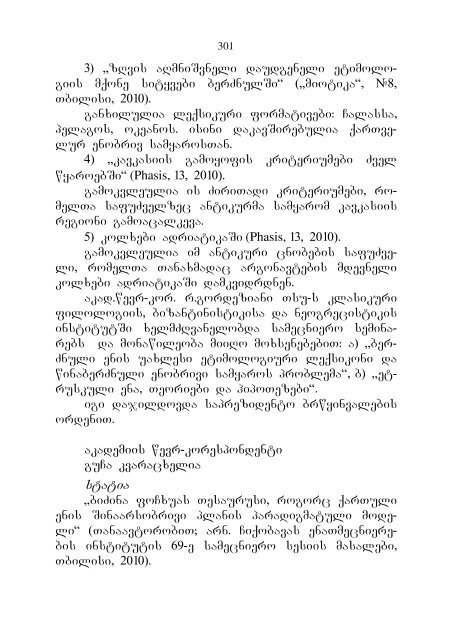 301
3) „ზღვის აღმნიშვნელი დაუდგენელი ეტიმოლო-
გიის მქონე სიტყვები ბერძნულში“ („მიოტიკა“, №8,
თბილისი, 2010).
განხილულია ლექსიკური ფორმატივები: ჩალასსა,
პელაგოს, ოკეანოს. ისინი დაკავშირებულია ქართვე-
ლურ ენობრივ სამყაროსთან.
4) „კავკასიის გამოყოფის კრიტერიუმები ძველ
წყაროებში“ (Phasis, 13, 2010).
გამოკვლეულია ის ძირითადი კრიტერიუმები, რო-
მელთა საფუძველზეც ანტიკურმა სამყარომ კავკასიის
რეგიონი გამოაცალკევა.
5) კოლხები ადრიატიკაში (Phasis, 13, 2010).
გამოკვლეულია იმ ანტიკური ცნობების საფუძვე-
ლი, რომელთა თანახმადაც არგონავტების მდევნელი
კოლხები ადრიატიკაში დამკვიდრდნენ.
აკად.წევრ-კორ. რ.გორდეზიანი თსუ-ს კლასიკური
ფილოლოგიის, ბიზანტინისტიკისა და ნეოგრეცისტიკის
ინსტიტუტში ხელმძღვანელობდა სამეცნიერო სემინა-
რებს და მონაწილეობა მიიღო მოხსენებებით: ა) „ბერ-
ძნული ენის უახლესი ეტიმოლოგიური ლექსიკონი და
წინაბერძნული ენობრივი სამყაროს პრობლემა“, ბ) „ეტ-
რუსკული ენა, თეორიები და ჰიპოთეზები“.
იგი დაჯილდოვდა საპრეზიდენტო ბრწყინვალების
ორდენით.
აკადემიის წევრ-კორესპონდენტი
გუჩა კვარაცხელია
სტატია
„ბიძინა ფოჩხუას თესაურუსი, როგორც ქართული
ენის შინაარსობრივი პლანის პარადიგმატული მოდე-
ლი“ (თანაავტორობით; არნ. ჩიქობავას ენათმეცნიერე-
ბის ინსტიტუტის 69-ე სამეცნიერო სესიის მასალები,
თბილისი, 2010).